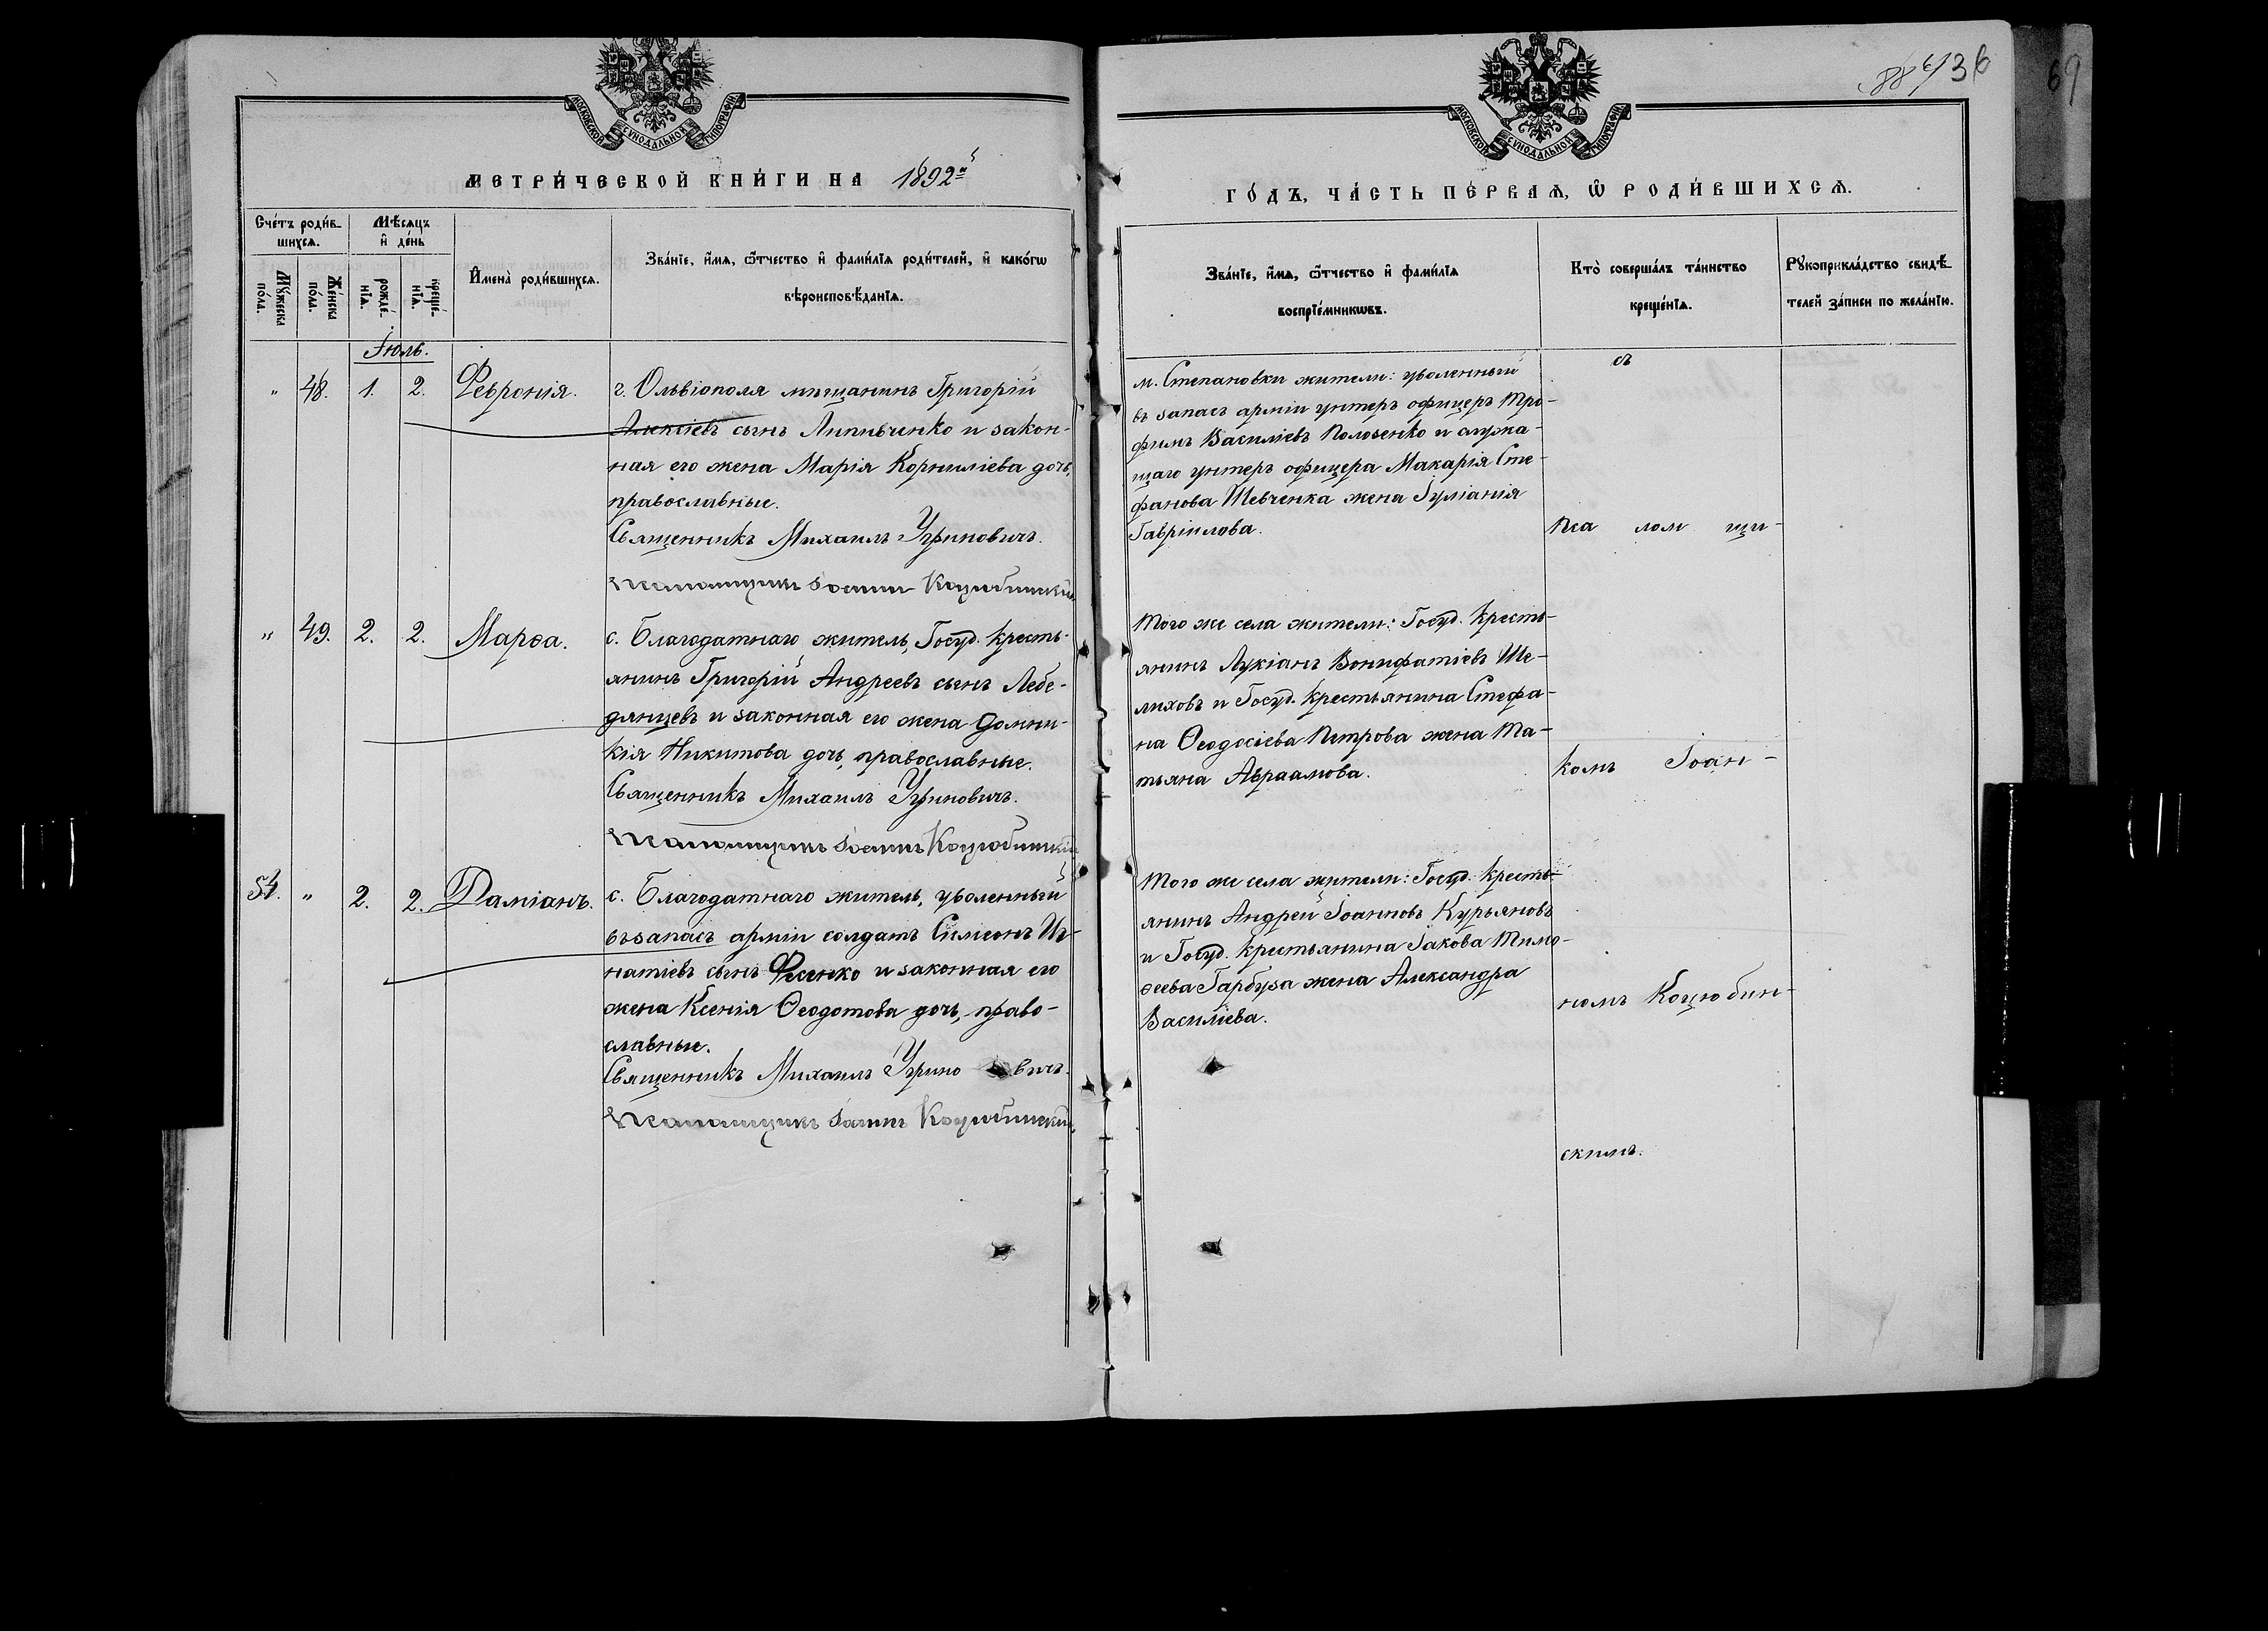 МОСКОВСКОЙ СѴНОДАЛЬНОЙ ТИПОГРАФІИ
МЕТРИ́ЧЕСКОЙ КНИ́ГИ НА 1892й
Сче́тъ роди́в-
шихся.
Мѣсяцъ
и҆ де́нь
Мꙋ́жеска
по́ла.
Же́нска
по́ла.
рожде́-
нїя.
креще́-
нїя.
И҆мена̀ роди́вшихся.
Зва́нїе, и҆́мя, ѻ҆́тчество и҆ фами́лїя роди́телей, и҆ како́гѡ
вѣроисповѣ́данїя.
Іюль.
" 48. 1. 2. Февронія.
г. Ольвіополя мѣщанинъ Григорій
Алексіевъ сынъ Липивченко и закон-
ная его жена Марія Корниліева дочь,
православные.
Священникъ Михаилъ Угриновичъ.
Псаломщикъ Іоаннъ Коцюбинскій
" 49. 2. 2. Марѳа.
с. Благодатнаго житель, Госуд. кресть-
янинъ Григорій Андреевъ сынъ Лебе-
дянцевъ и законная его жена Домни-
кія Никитова дочь, православные.
Священникъ Михаилъ Угриновичъ.
Псаломщикъ Іоаннъ Коцюбинскій
54. " 2. 2. Даміанъ.
с. Благодатнаго житель, уволенный
въ запасъ арміи солдатъ Симеонъ Иг-
натіевъ сынъ Фесенко и законная его
жена Ксенія Ѳеодотова дочь, право-
славные.
Священникъ Михаилъ Угриновичъ.
Псаломщикъ Іоаннъ Коцюбинскій.
88 436
69
МОСКОВСКОЙ СѴНОДАЛЬНОЙ ТИПОГРАФІИ
ГО́ДЪ, ЧА́СТЬ ПЕ́РВАЯ, Ѡ҆ РОДИ́ВШИХСЯ.
Зва́нїе, и҆́мя, ѻ҆́тчество и҆ фами́лїя
воспрїе́мникѡвъ.
Кто̀ соверша́лъ та́инство
креще́нїя.
Рꙋкоприкла́дство свидѣ́-
телей за́писи по жела́нїю.
м. Степановки жители: уволенный
въ запасъ арміи унтеръ офицеръ Тро-
фимъ Василіевъ Полозенко и служа-
щаго унтеръ офицера Макарія Сте-
фанова Шевченка жена Іуліанія
Гавріилова.
Того же села жители: Госуд. кресть-
янинъ Лукіанъ Вонифатіевъ Ше-
лиховъ и Госуд. крестьянина Стефа-
на Ѳеодосіева Петрова жена Та-
тьяна Авраамова.
Того же села жители: Госуд. кресть-
янинъ Андрей Іоанновъ Курьяновъ
и Госуд. крестьянина Іакова Тимо-
ѳеева Гарбуза жена Александра
Василіева.
Пса лом щи-
комъ Іоан-
номъ Коцюбин-
скимъ.